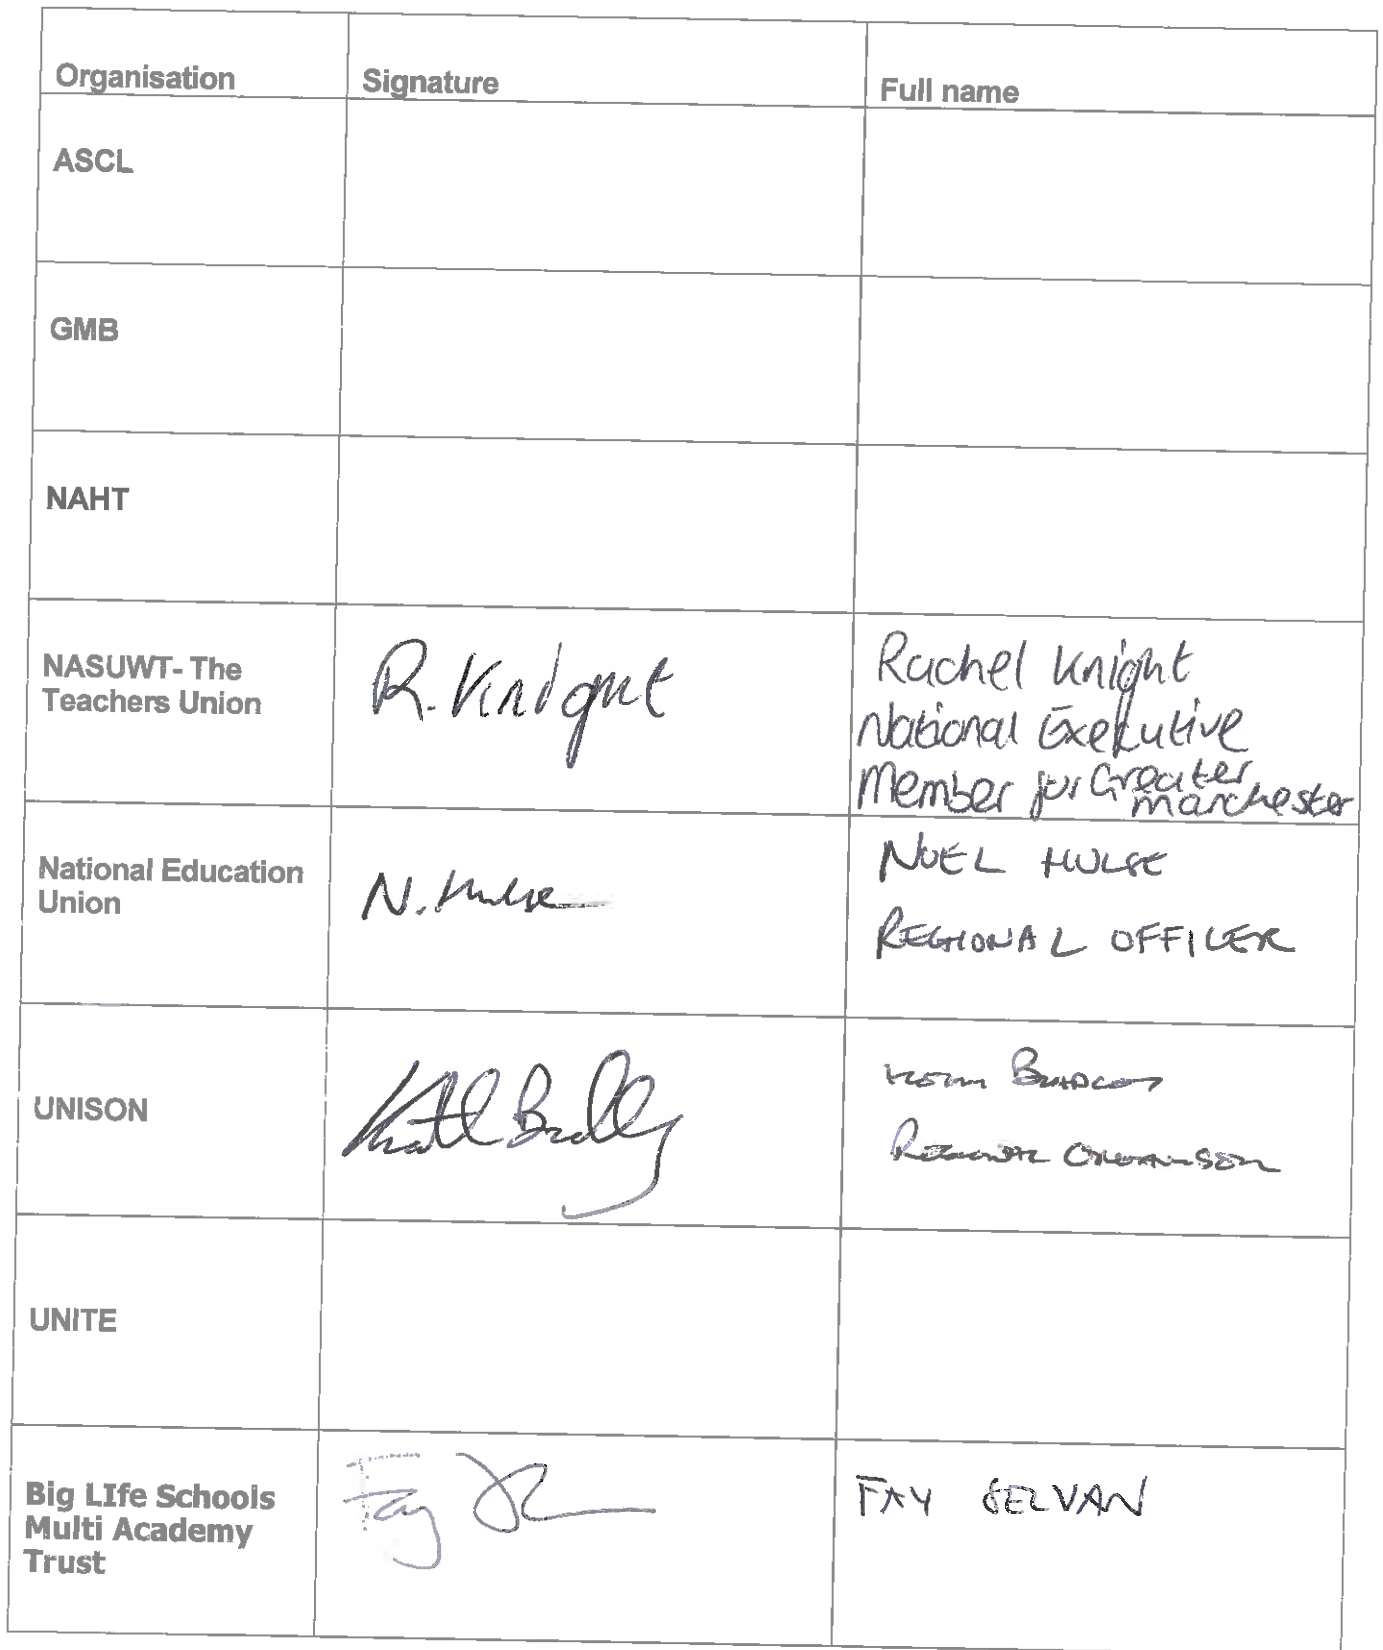 Organisation Signature Full name
ASCL
GMB
NAHT
NASUWT- The
Teachers Union
R. Knight
Rachel Knight
National Executive
Member for Greater
Manchester
National Education
Union
N. Hulse
NOEL HULSE
REGIONAL OFFICER
UNISON
Keith Bradley
KEITH BRADLEY
REGIONAL ORGANISER
UNITE
Big LIfe Schools
Multi Academy
Trust
Fay
FAY SELVAN